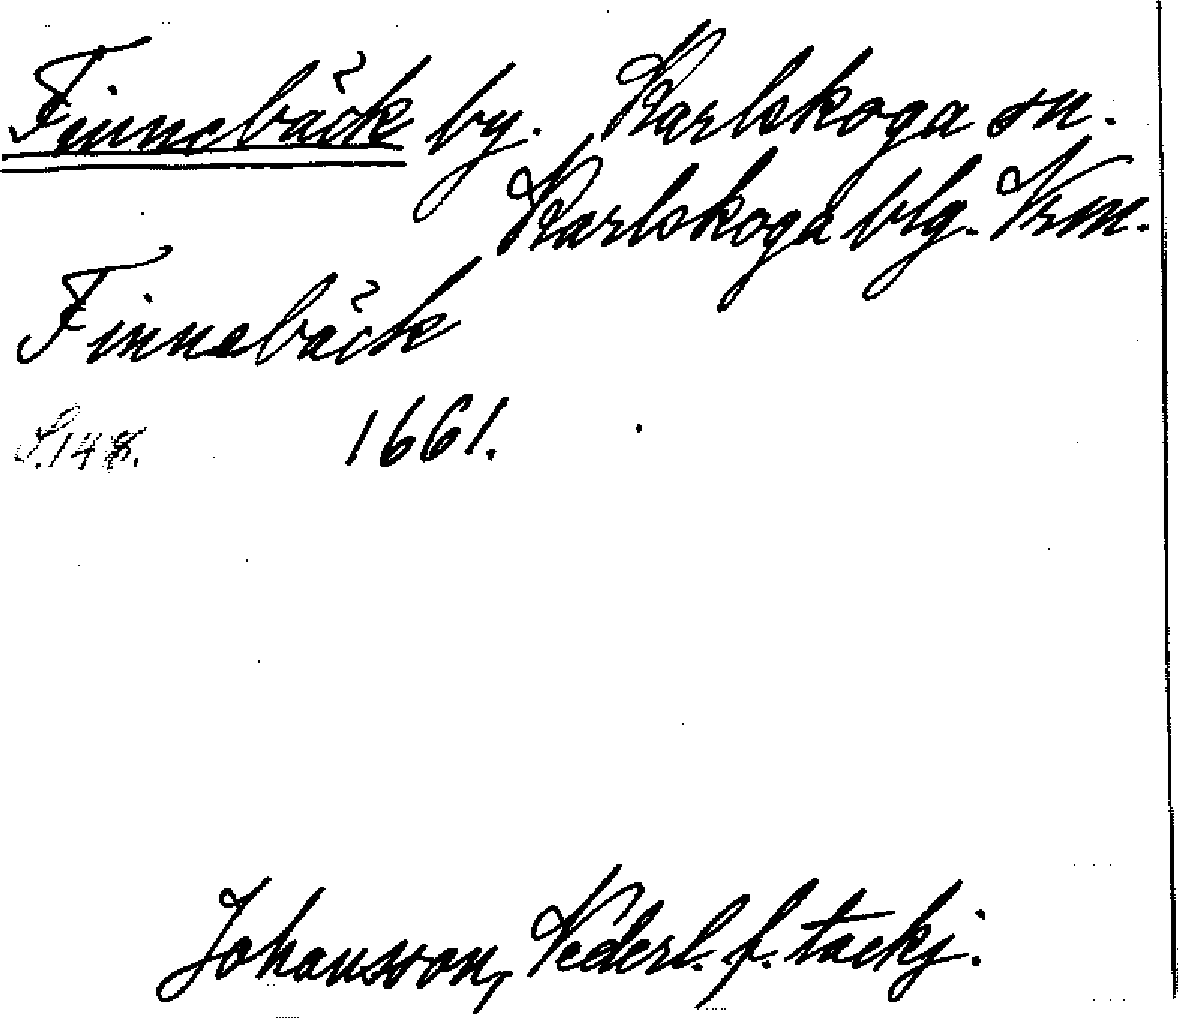 Finnebäck by. Karlskoga sn.
Karlskoga blg. Vrm.
Finnebäck
S.148. 1661.
Johansson, Nederl. f. tackj.